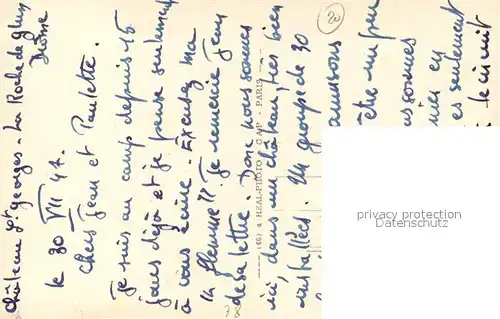 Château St georges - La Roche de glun
Drôme
le 30 VII 47.
Chers Jean et Paulette.
Je suis au camp depuis 15
jours déjà et je pense seulement
à vous écrire. Excusez ma
"flemme"! Je remercie Jean
de sa lettre. Donc nous sommes
ici, dans un château, très bien
installées. Un groupe de 30
amusons
être un peu
sommes
en
es seulement
le circuit
(46) REAL-PHOTO C.A.P. - PARIS
20
privacy protection
Datenschutz